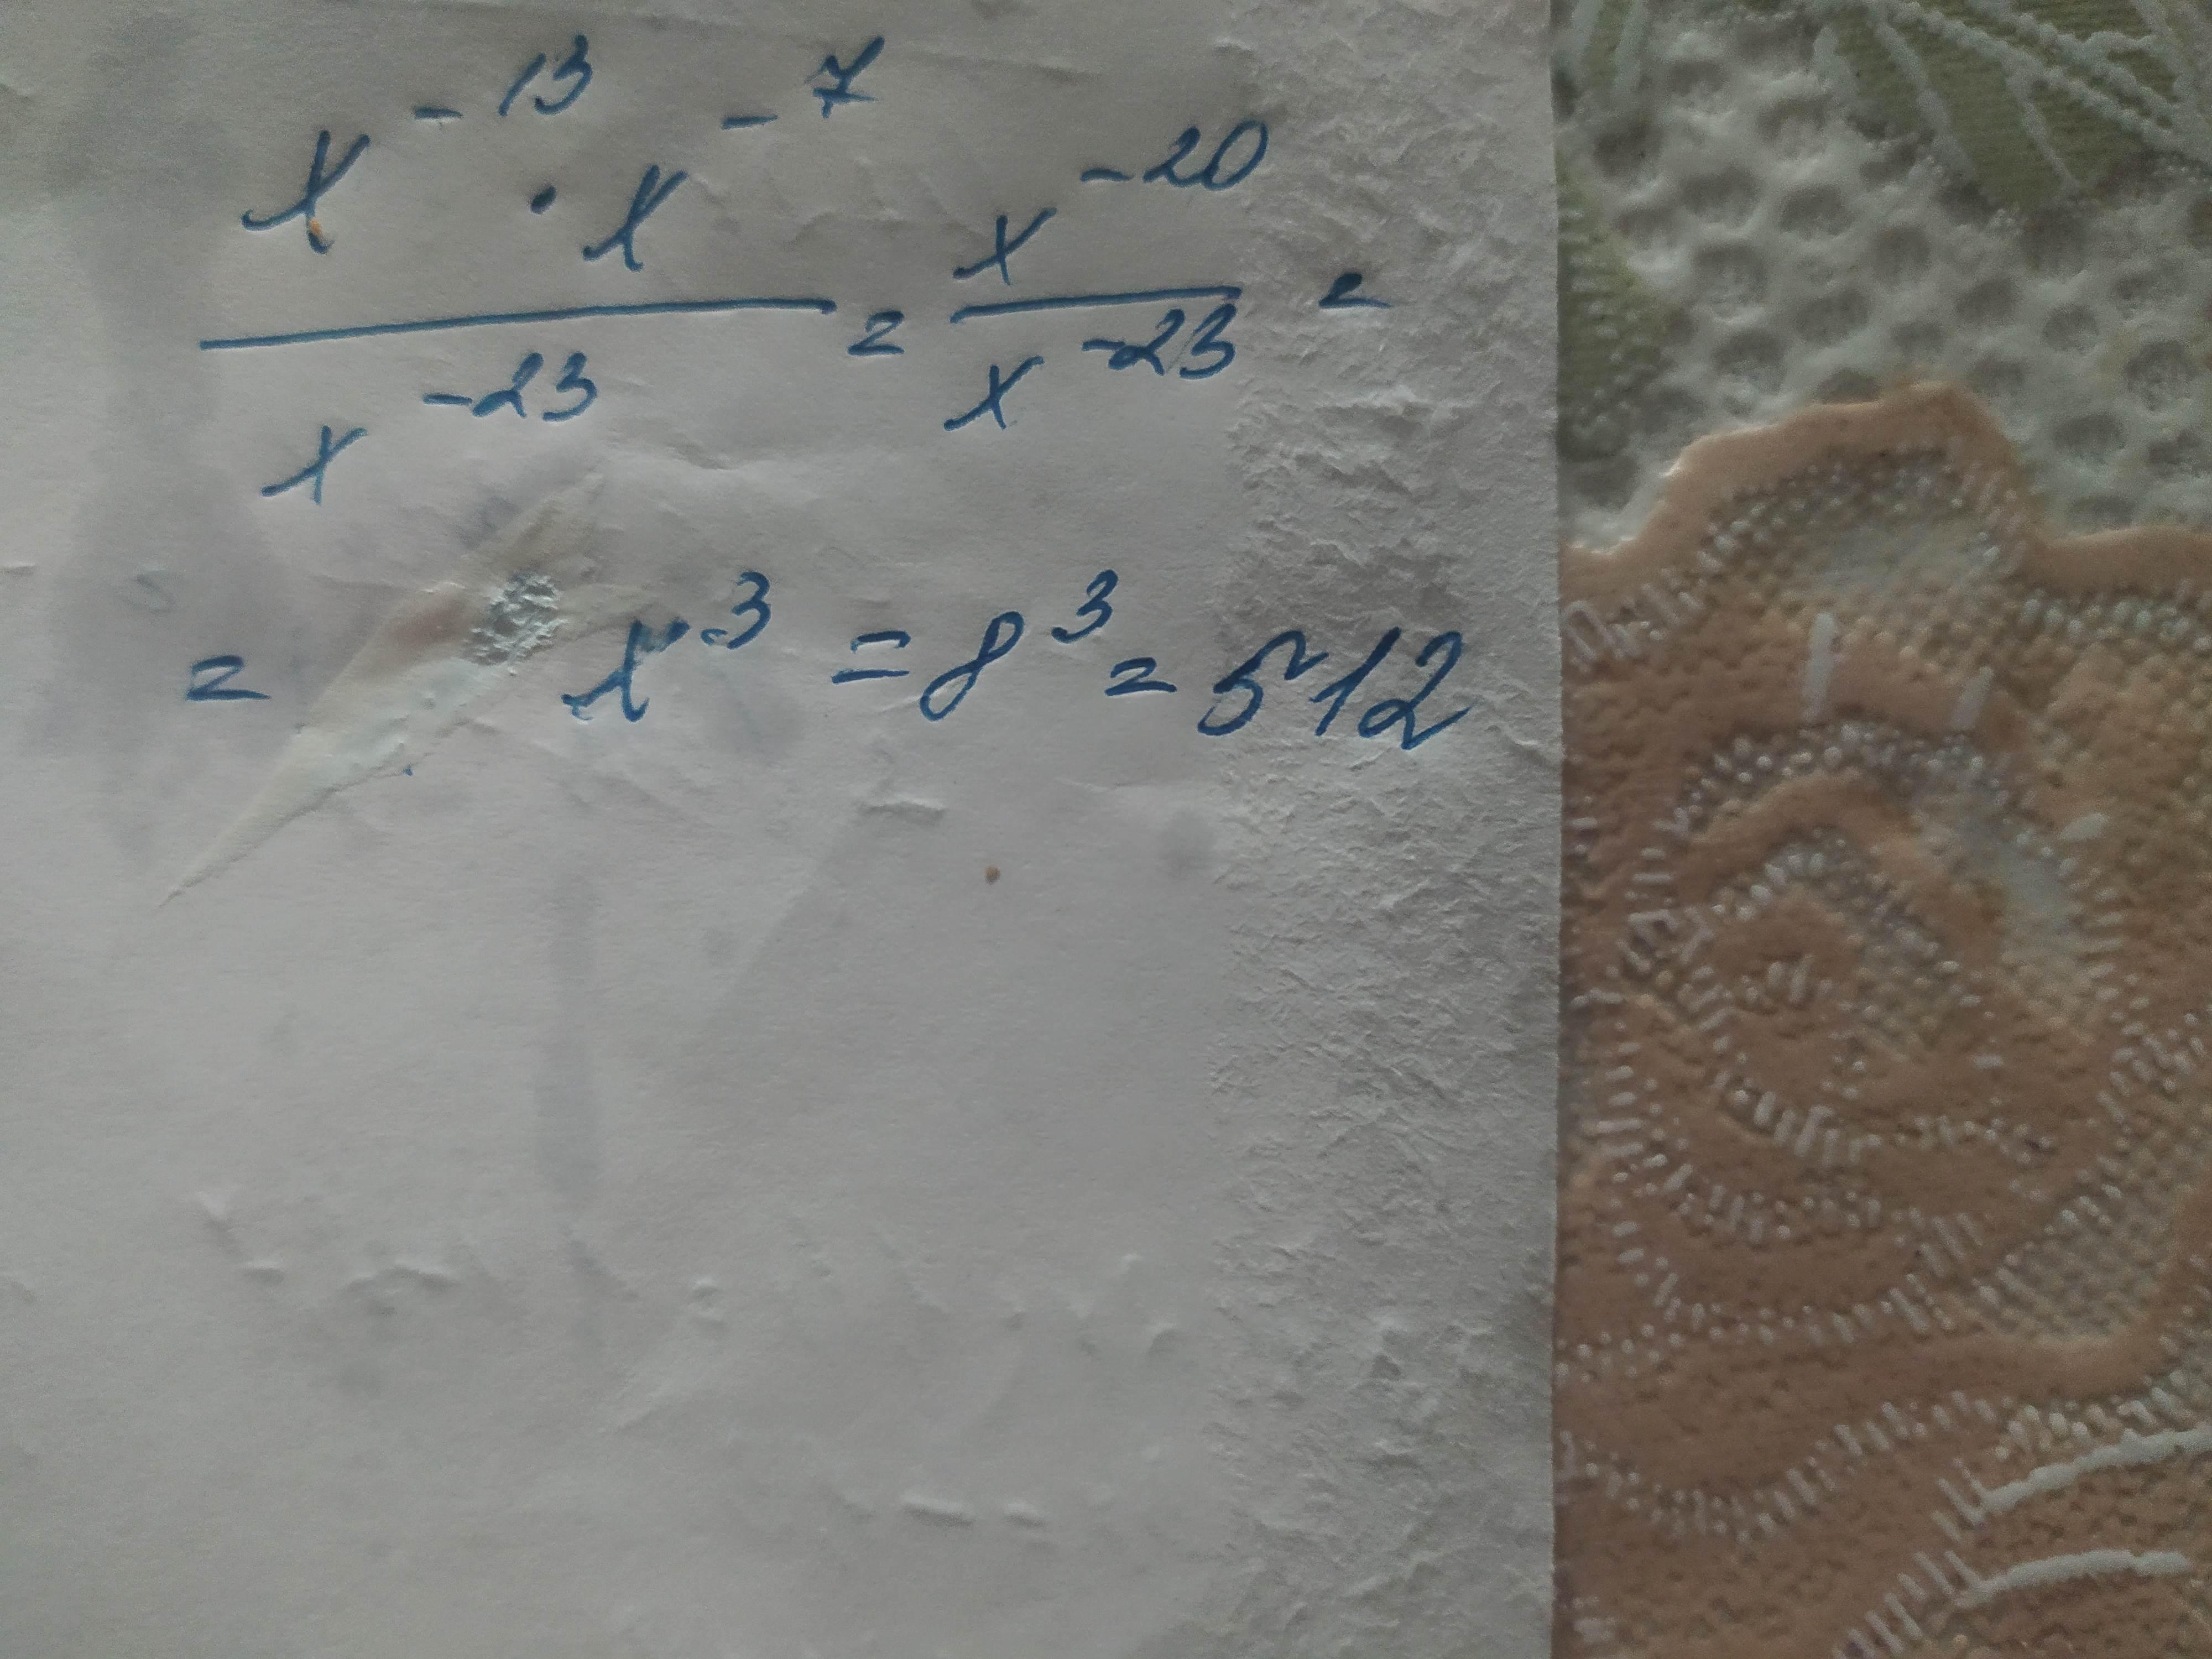 x^-13 · x^-7 / x^-23 = x^-20 / x^-23 =
= x^3 = 8^3 = 512